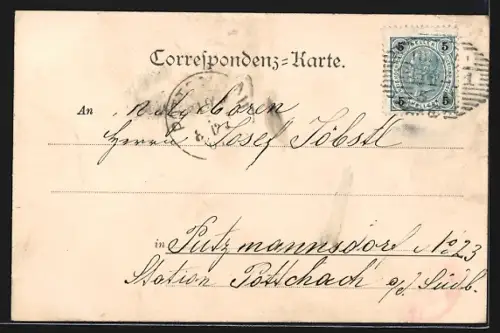 Correspondenz-Karte.
5 5
5 5
An Wohlgeboren
Herrn Josef Jöbstl
in Putzmannsdorf No 23
Station Pottschach a/d. Südb.